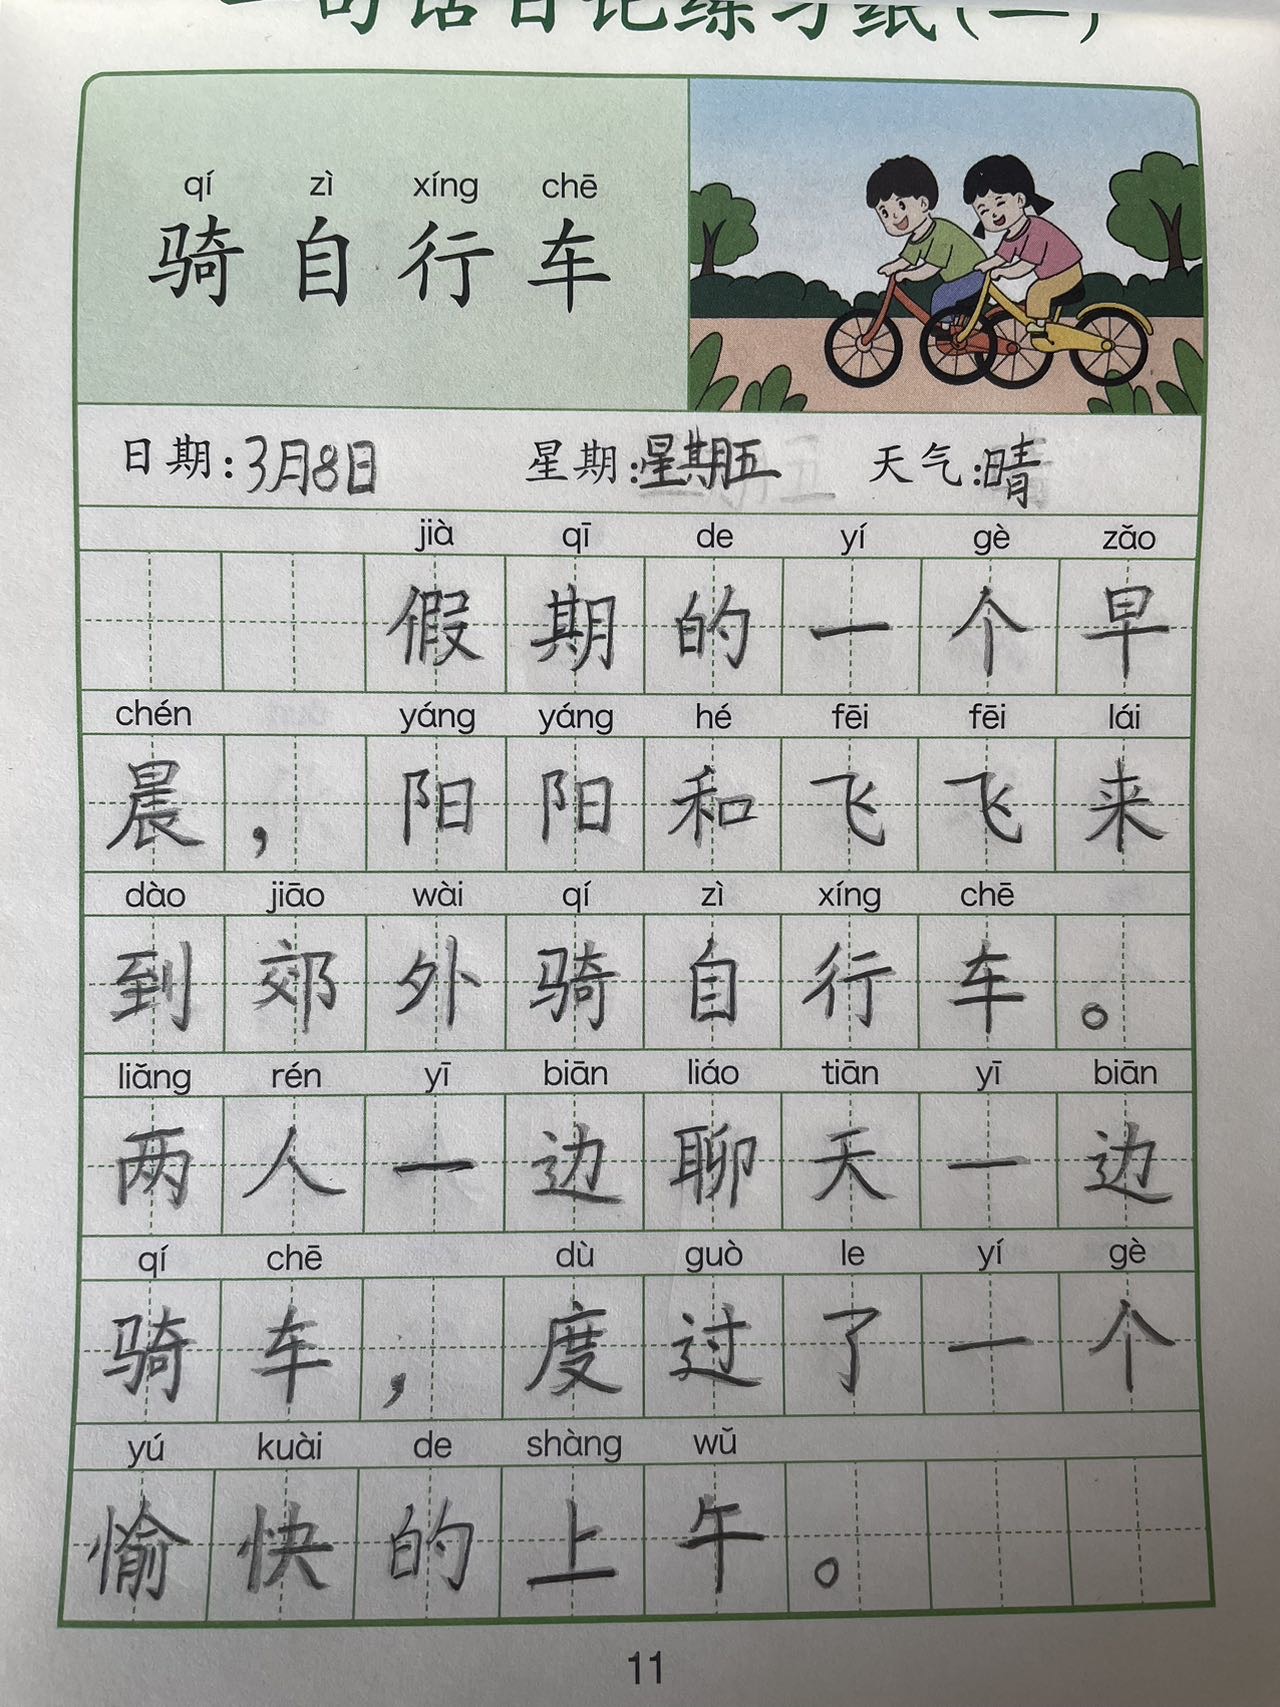 一句话日记练习纸(二)
qí zì xíng chē
骑自行车
日期:3月8日 星期:星期五 天气:晴
jià qī de yí gè zǎo
假期的一个早
chén yáng yáng hé fēi fēi lái
晨，阳阳和飞飞来
dào jiāo wài qí zì xíng chē
到郊外骑自行车。
liǎng rén yī biān liáo tiān yī biān
两人一边聊天一边
qí chē dù guò le yí gè
骑车，度过了一个
yú kuài de shàng wǔ
愉快的上午。
11